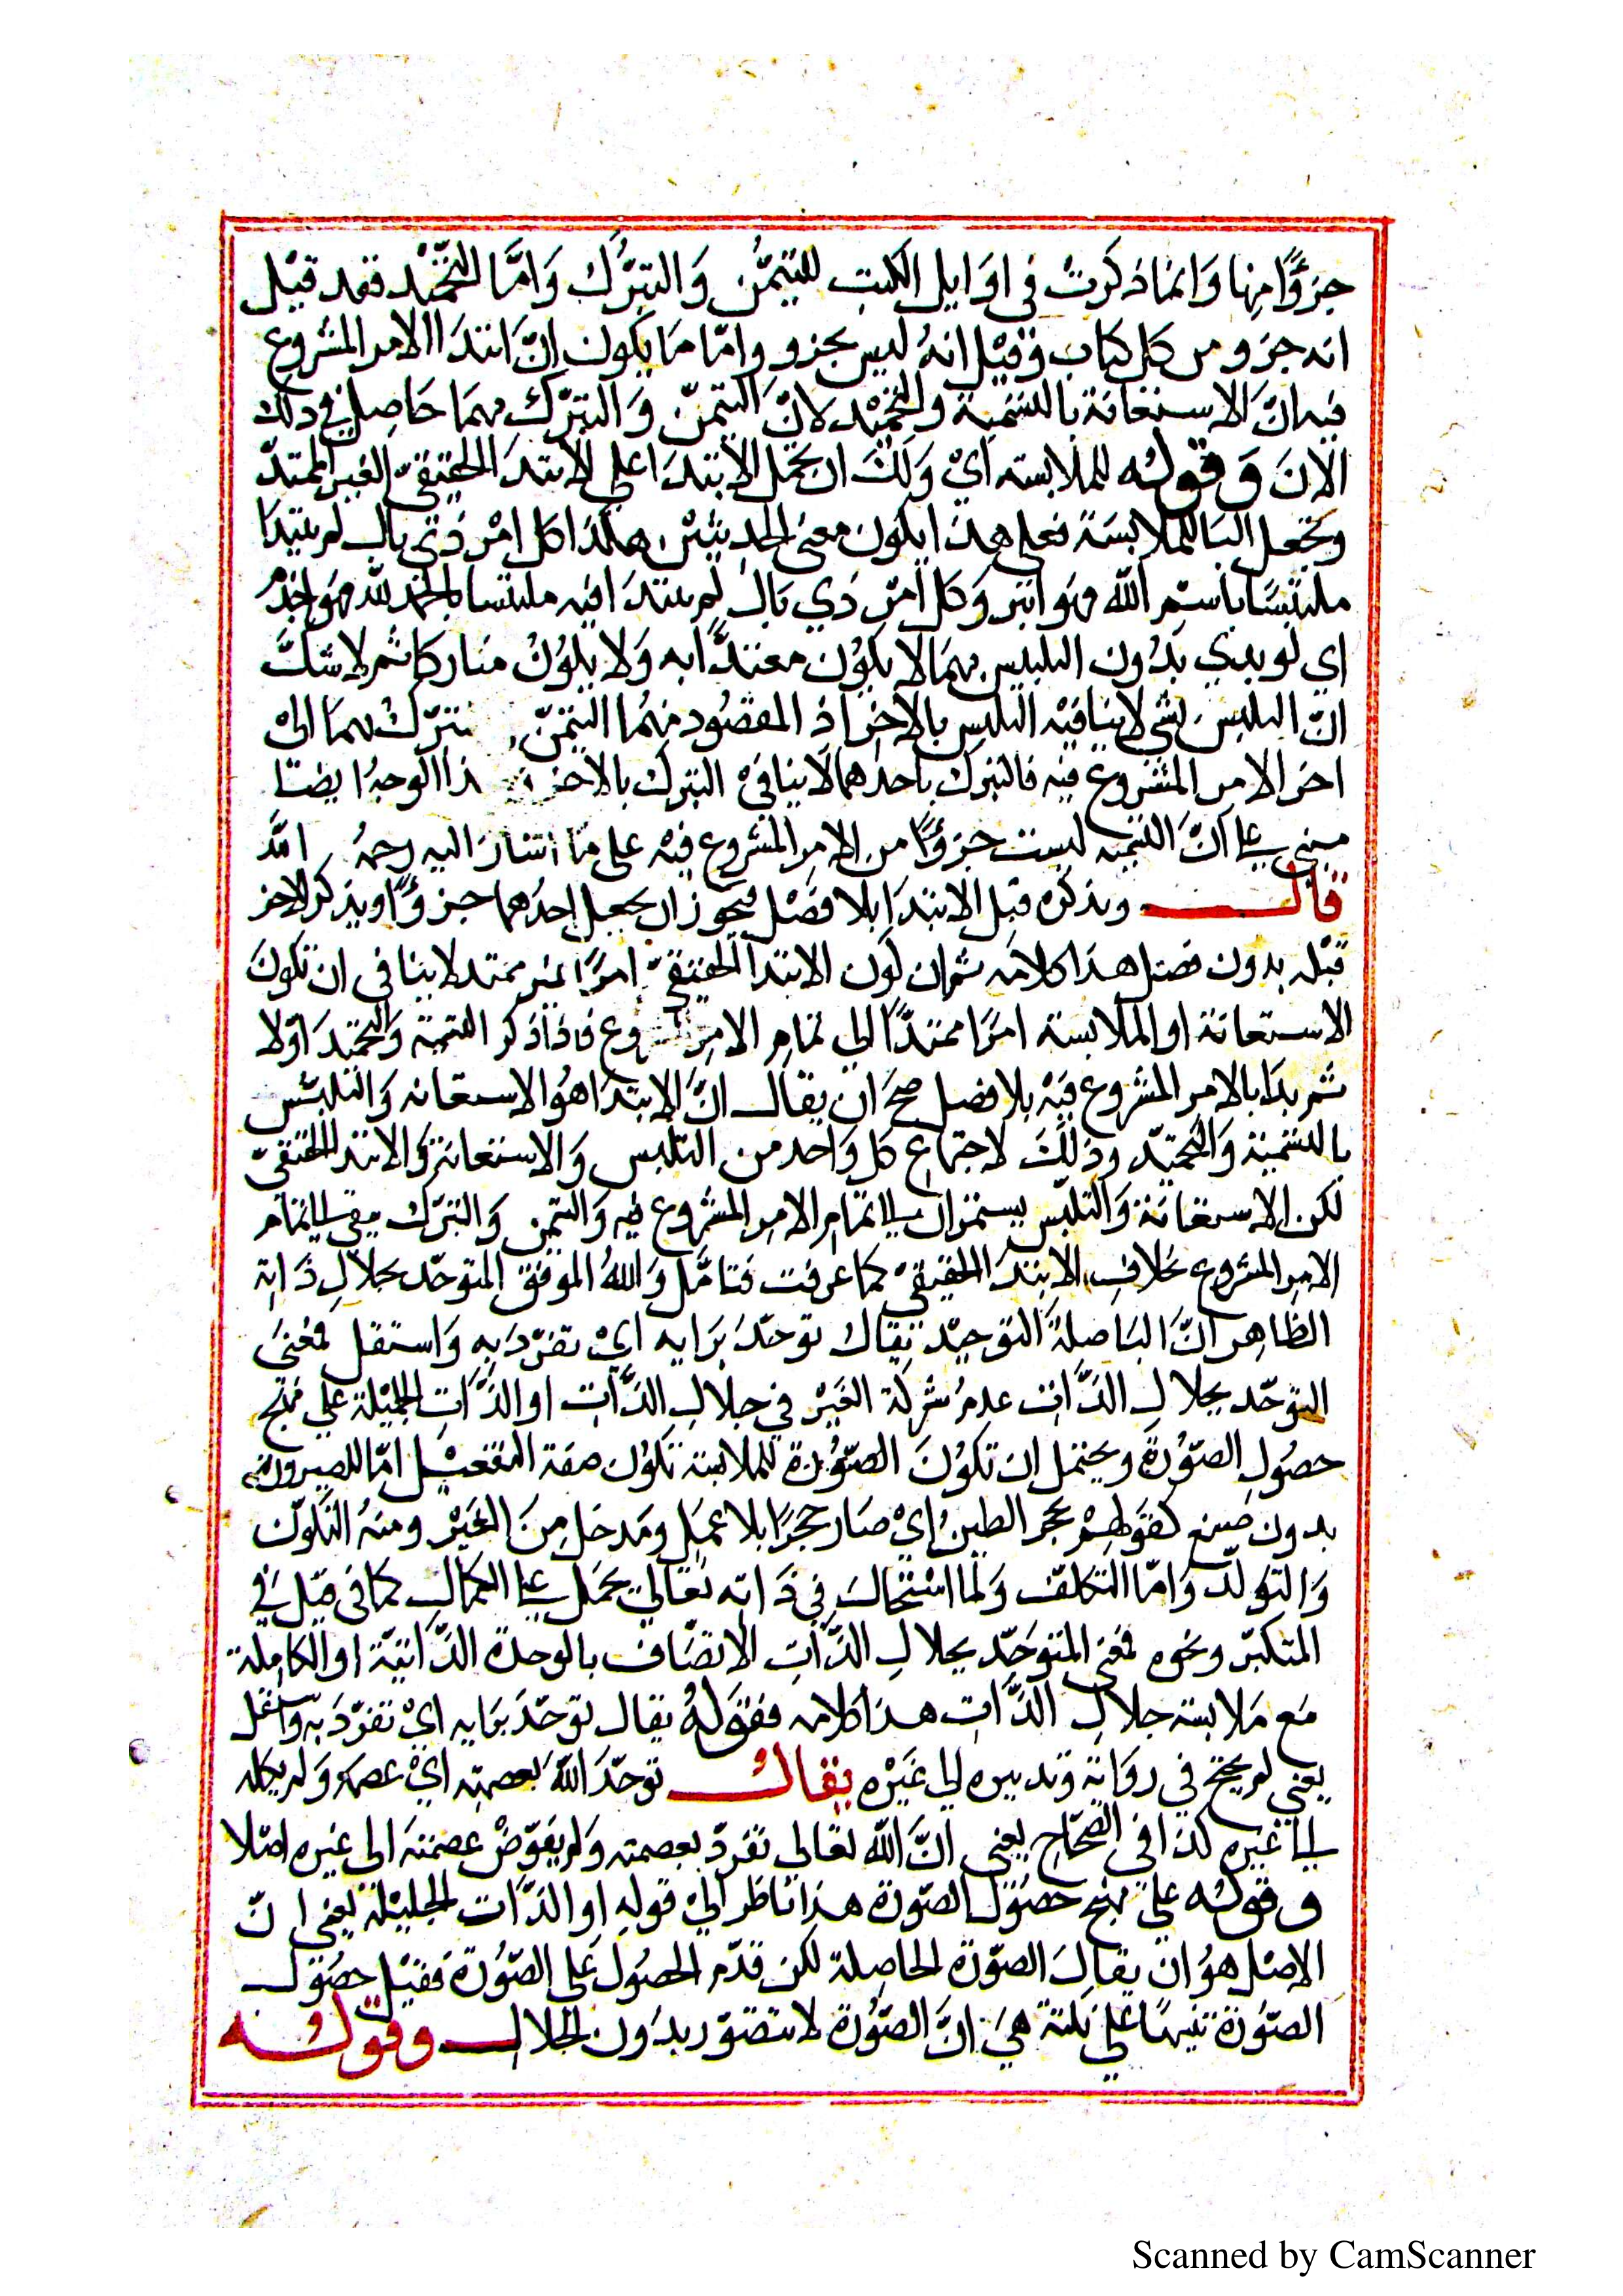 جزؤًا منها وَانما ذكرتْ فى اوَايل الكتبِ للتيمُّن وَالتبرُّك وَامَّا التحْمِيْد فقد قيْل
انه جزو من كل كتاب وَقيْل انهُ ليس بجزو وامّا مَا يكون انَّ ابتدَا الامر المشروع
فيه انّ الاستعَانة بالتسْمِية والتحْمِيْد لانّ التيمنّ وَالتبرّكِ بهمَا حَاصِل في ذلك
الانَ وَقوله للملابسته ايْ وَلكَ ان يحمَل الابتدَا على الابتدَ الحقيقيّ الغير الممتدّ
وتجعل البَا للملابسَة فعلى هذا يكون معنى الحدِيثينْ هكذا كل امْر ذي بال لم يبتدَا
ملتبسًا باسْمِ اللّه فهو ابتر وَكل امْر ذي بَال لم يبتدَا فيه ملتبسا بالحمْد للّه فهوَ اجذمُ
اي لو بدي بدُون التلبس بهمَا لا يكوُن معتدًّا به وَلا يكوُنُ مباركا ثم لا شكّ
انّ التلبس بشي لا ينَافيْه التلبس بالاخر اذ المقصُود منهُما التيَمّن تبرّكُ بهمَا الىْ
اخر الامر المشروع فيْه فالتبرك باحدهما لا ينافىْ التبرك بالاخر ذا الوجهُ ايضًا
مبني على انّ التسْمِيه ليست جزؤًا من الامر المشروع فيْه على مَا اشارَ اليه رحمهُ اللّه
قال وبذكره قبل الابتدَا بلا فصْل فيجُوز ان يجعل احدُهما جزؤًا ويذكر الاخر
قبْله بدون فصْل هذا كلامَه ثم ان كون الابتدا الحقيقيّ امرًا غير ممتد لا ينافى ان تكونَ
الاستعانة او الملابسة امرًا ممتدًّا الى تمامِ الامرِ وع فاذا ذكر التسْمِية وَالتحْمِيْد اوّلا
ثم بدَا بالامر المشروع فيْه بلا فصل صحَ ان يقال انّ الابتدَا هُوَ الاستعانه وَالتلبّس
بالتسْمِيَة وَالتحْمِيْد وذلكَ لاجتماع كل وَاحد من التلبس وَالاستعانة وَالابتدَا الحقيقيّ
لكن الاستعَانة وَالتلبّس يستمران الى تمامِ الامرِ المشروع فيه وَالتيمن وَالتبرّك يبقى الى تمام
الامرِ المشروع بخلافِ الابتدَا الحقيقيْ كما عرفت فتامَّل وَاللهُ الموفق المتوحّد بجلالِ ذَاتِهِ
الظاهر انَّ البَا صلةُ التوحيّد يُقال توحّدَ بَرَايه ايْ تفرّدَ بِه وَاستقل فمعْنى
التوحّد بجلالِ الذّاتِ عدمُ شركة الغَيْر في جلالِ الذّاتِ او الذّاتِ الجليْلة علي نهج
حصُولِ الصّوُرة ويحتمل ان تكوُنَ الصّوُرة للملابسة تكوُن صفة التفعيْل امّا للصيرورة
بدون صُنع كقوْلهمْ بحجر الطينُ ايْ صَار حجرًا بلا عمَل ومَدخل مِنَ الغَيْر ومنهُ التّكوّن
وَالتولّد وَامّا التكلّف وَلما اسْتحالَ فِي ذَاته تعَالي يحمَل على الكمالِ كما في قيْل في
المتكبّر ونحوه فمعنى المتوَحّد بجلالِ الذّاتِ الاتصَاف بالوحدة الذّاتيّة او الكاملة
مَع مَلابسة جلالِ الذّاتِ هذا كلامه فقوَلهُ يقال توحّدَ بَرَايه ايْ تفرّدَ بِه وَاستقل
يعْني لم يحتج في روَاية وَتدبيره الي غيْره يقال توحّدَ اللّهُ بعصمتِه ايْ عصمه وَلم يكله
الى غيْره كذا فى الصّحَاح يعْنى انّ اللّه تعَالى تفرّد بعصمته وَلم يفوّضْ عصمتهَ الى غيره اصْلا
وقوله علي نهج حصُول الصّورة هذا ناظر الىْ قولهِ او الذّات الجليْلة يعْني انّ
الاصْل هوُ ان يقالَ الصّورة الحاصِلة لكن قدّم الحصُول على الصّوُرة فقيْل حصُول
الصّوَرة تنبيهًا علي نكتة هيَ انّ الصّوُرة لا تتصوّر بدَون الجلال وقوله
Scanned by CamScanner